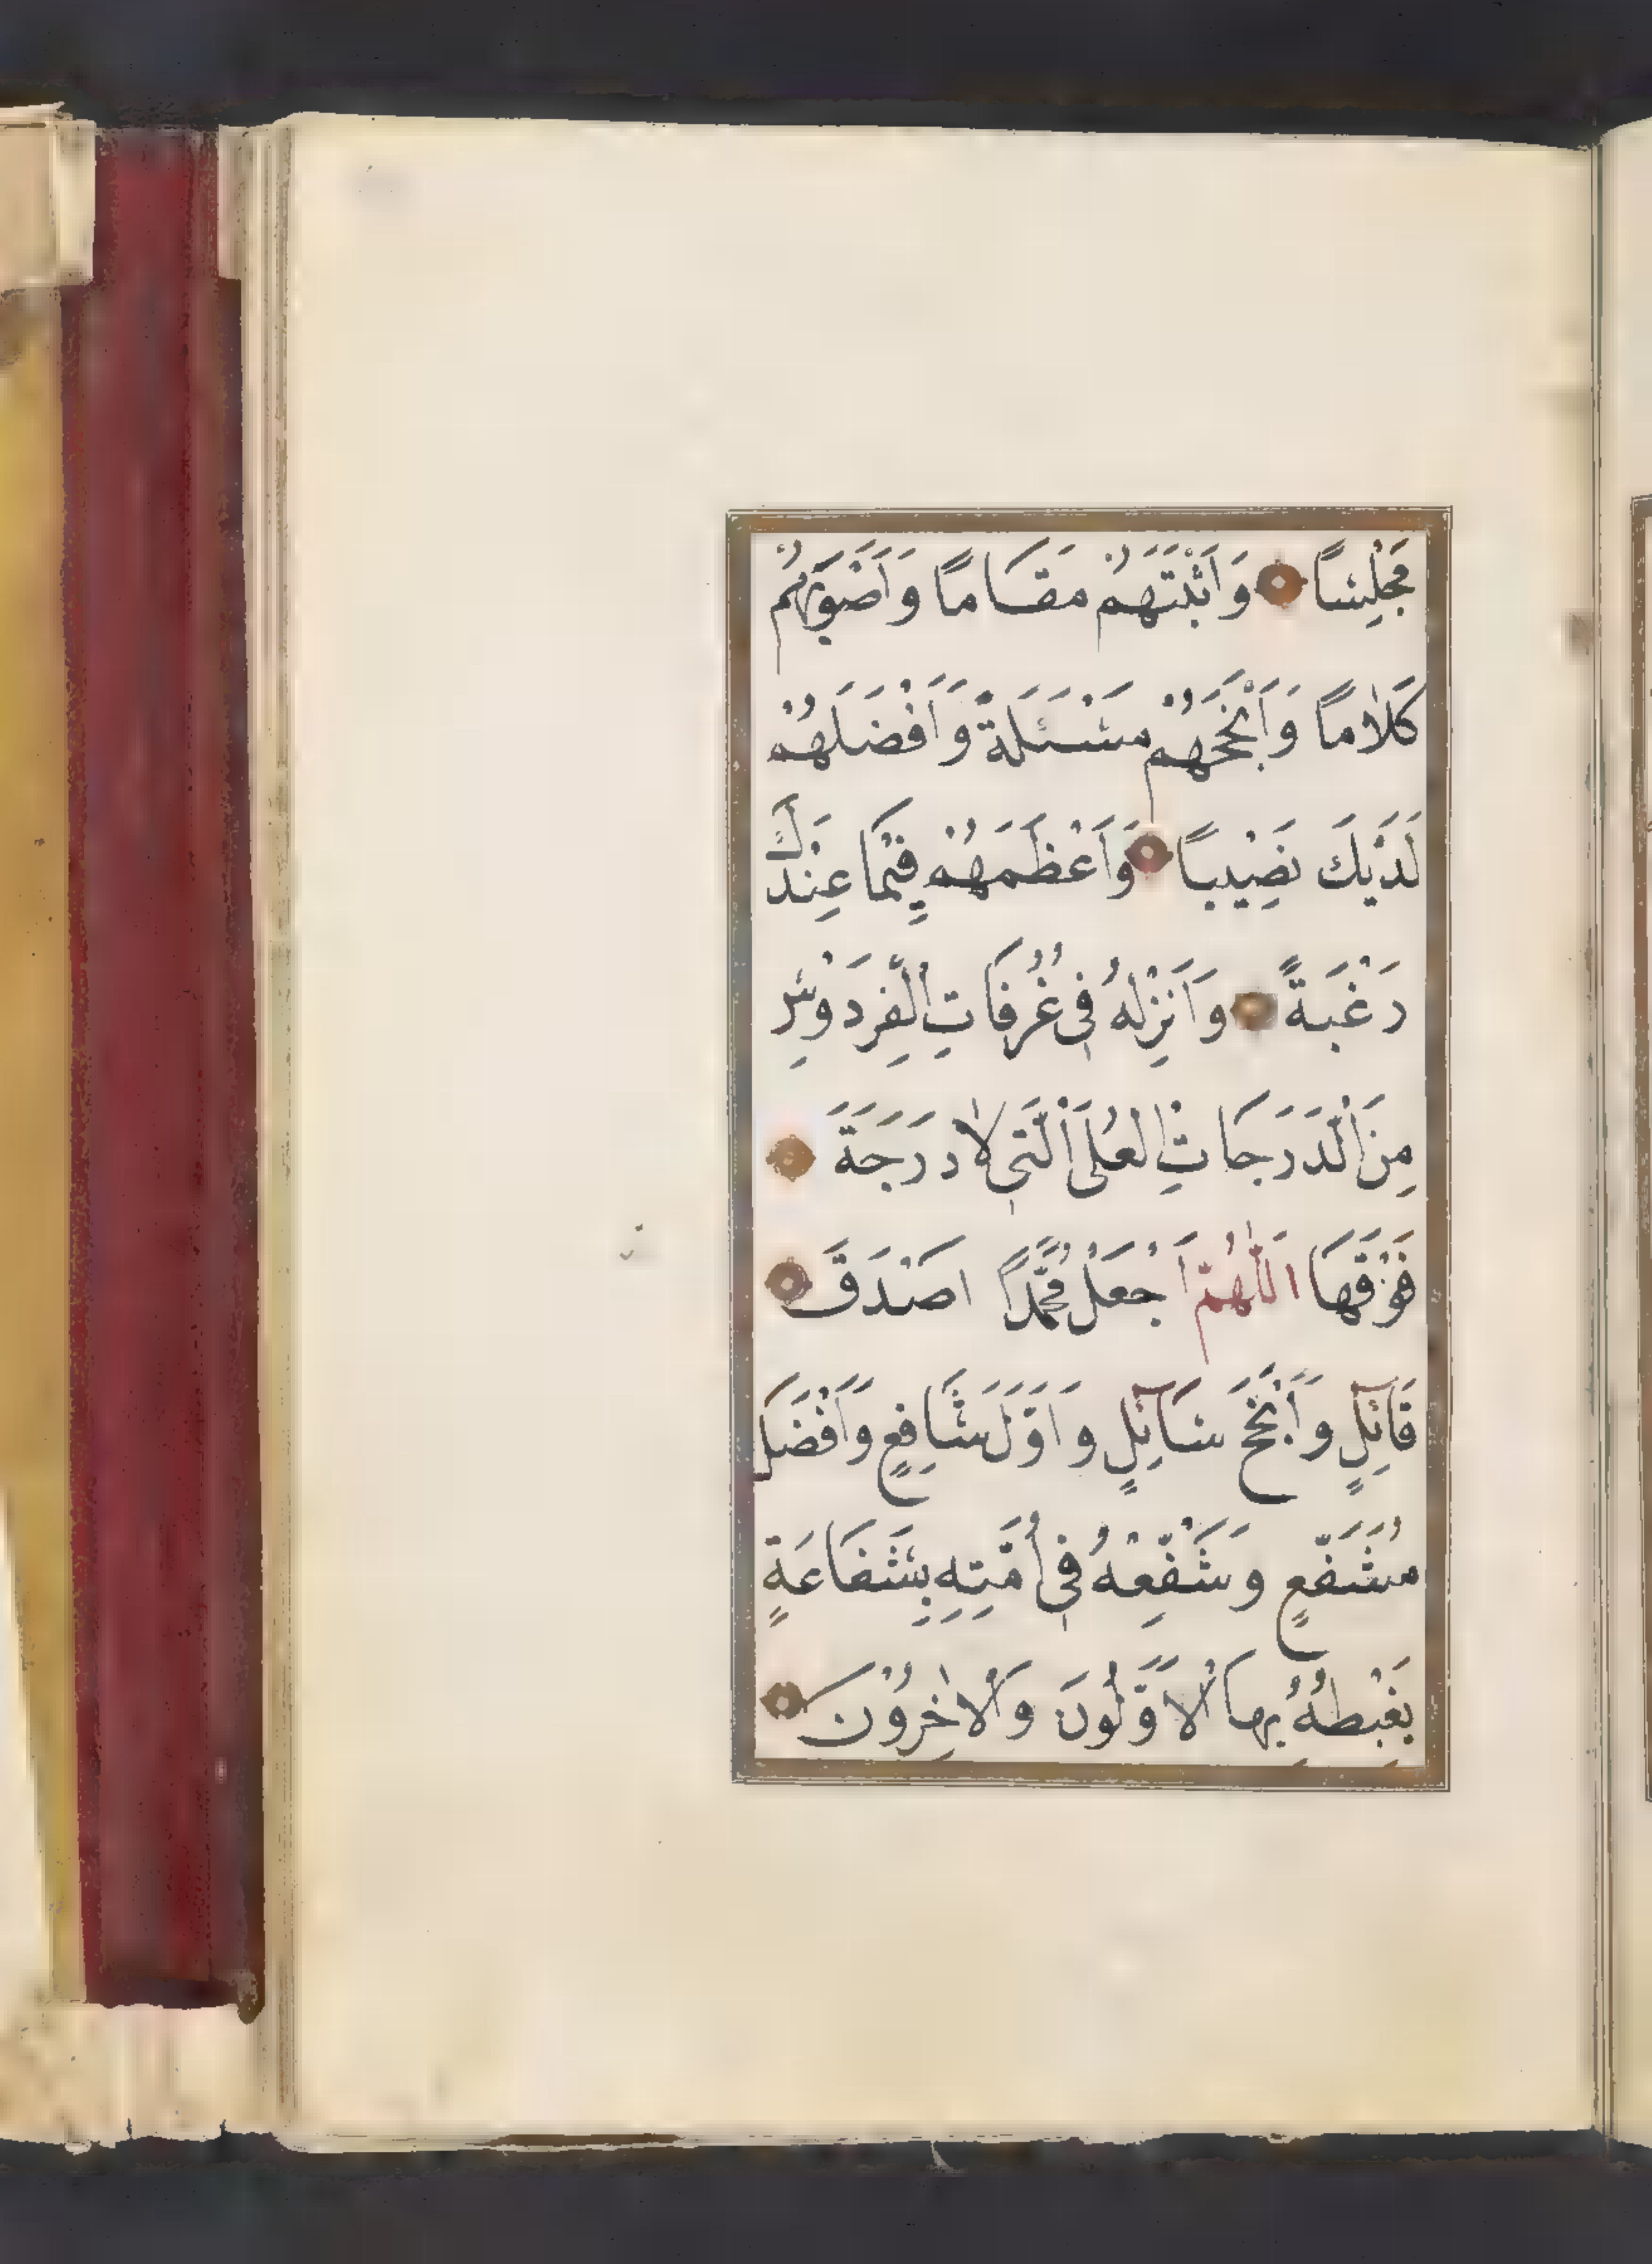 مَجْلِسًا وَاَثْبَتَهُمْ مَقَامًا وَاَصْوَبَهُمْ
كَلَامًا وَاَنْجَحَهُمْ مَسْئَلَةً وَاَفْضَلَهُمْ
لَدَيْكَ نَصِيْبًا وَاَعْظَمَهُمْ فِيْمَا عِنْدَكَ
رَغْبَةً وَاَنْزِلْهُ فِى غُرُفَاتِ الْفِرْدَوْسِ
مِنَ الْدَرَجَاتِ الْعُلَى الَّتِى لَا دَرَجَةَ
فَوْقَهَا اَللّٰهُمَّ اَجْعَلْ مُحَمَّدًا اَصْدَقَ
قَائِلٍ وَاَنْجَحَ سَائِلٍ وَاَوَّلَ شَافِعٍ وَاَفْضَلَ
مُشَفَّعٍ وَشَفِّعْهُ فِى اُمَّتِهِ بِشَفَاعَةٍ
يَغْبِطُهُ بِهَا الْاَوَّلُونَ وَالْاٰخِرُوْنَ